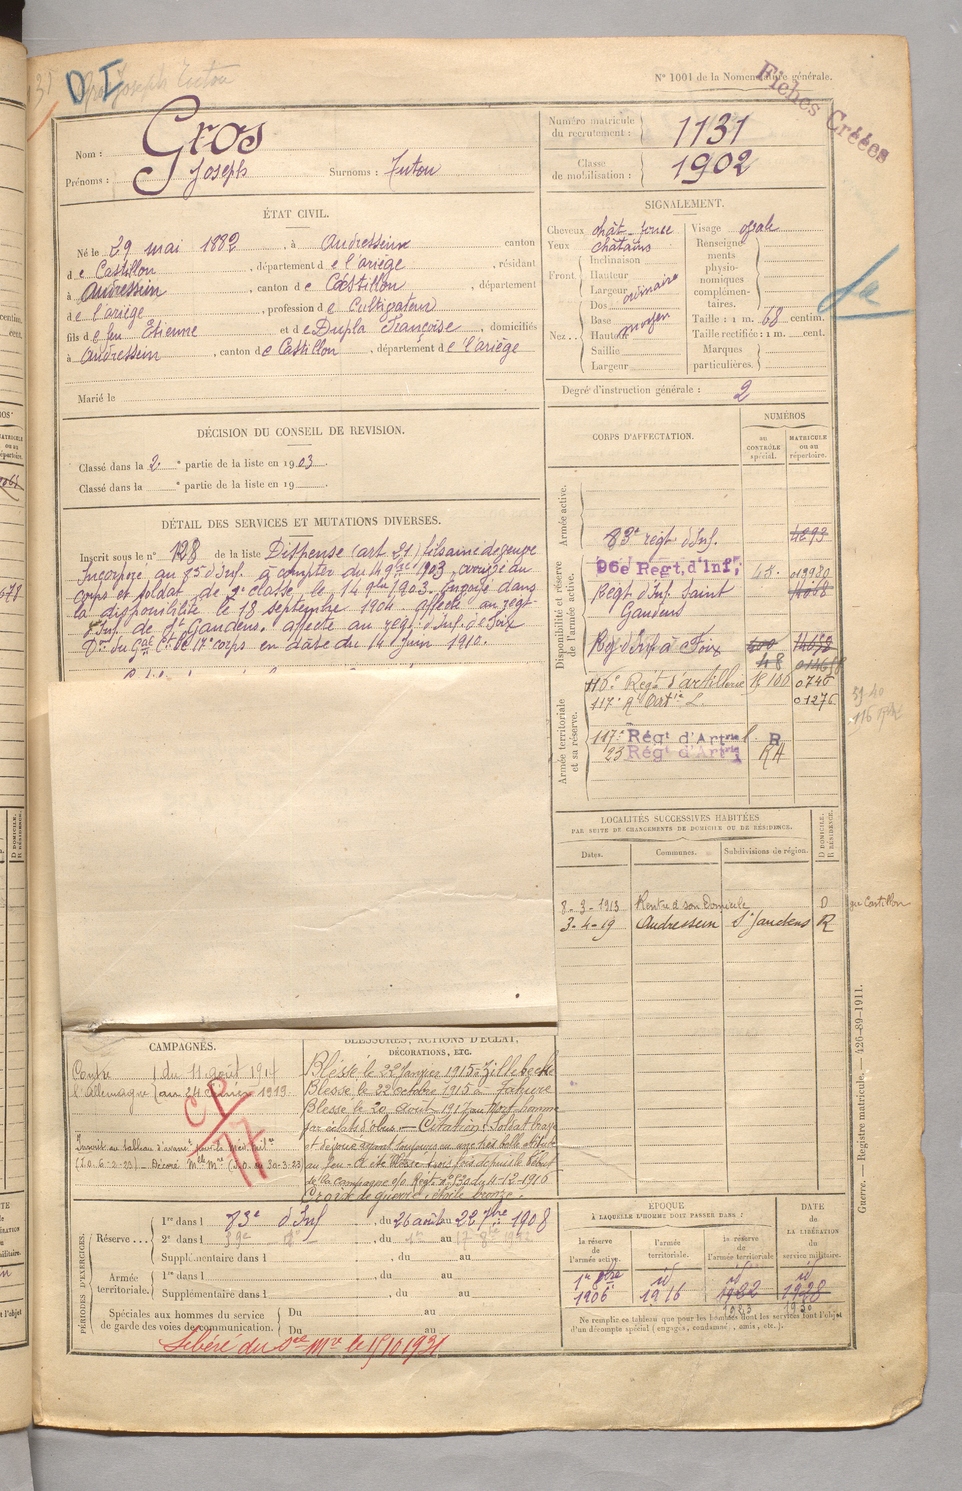 D I
Gros Joseph Tuton
N° 1001 de la Nomenclature générale.
Fiches Créées
Nom : Gros
Prénoms : Joseph Surnoms : Tuton
Numéro matricule du recrutement : 1131
Classe de mobilisation : 1902
ÉTAT CIVIL.
Né le 29 mai 1882, à Andressein canton
de Castillon, département de l'ariège, résidant
à Andressein, canton de Castillon, département
de l'ariège, profession de Cultivateur
fils de feu Etienne et de Dupla Françoise, domiciliés
à Andressein, canton de Castillon, département de l'ariège
Marié le
SIGNALEMENT.
Cheveux chât
Yeux châtains
Front Inclinaison
Hauteur
Largeur
ordinaire
Nez Dos
Base
Hauteur
moyen
Saillie
Largeur
Visage ovale
Renseignements physionomiques complémentaires.
Taille : 1 m. 68 centim.
Taille rectifiée : 1 m. cent.
Marques particulières.
Degré d'instruction générale : 2
DÉCISION DU CONSEIL DE REVISION.
Classé dans la 2e partie de la liste en 1903.
Classé dans la e partie de la liste en 19
DÉTAIL DES SERVICES ET MUTATIONS DIVERSES.
Inscrit sous le n° 128 de la liste Dispensé (art. 21) fils aîné de veuve
Incorporé au 83e d'Inf. à compter du 14 9bre 1903, arrivé au
corps et soldat de 2e classe le 14 9bre 1903. Envoyé dans
la disponibilité le 18 septembre 1904. Affecté au régt
d'Inf. de St Gaudens. affecté au régt d'Inf. de Foix
Don du Gal Ct le 17e corps en date du 14 Juin 1910.
CORPS D'AFFECTATION.
NUMÉROS
au CONTRÔLE spécial.
MATRICULE ou au répertoire.
Armée active.
83e régt d'Inf. 4293
Disponibilité et réserve de l'armée active.
96e Régt, d'Inf, 013980
Régt d'Inf Saint
Gaudens
Rgt d'Inf à Foix
48
Armée territoriale et sa réserve.
116e Régt d'artillerie R 100 0746
117e Rt Artie L. 01276
117e Régt d'Artrie l. R
23 Régt d'Artrie RA
LOCALITÉS SUCCESSIVES HABITÉES
PAR SUITE DE CHANGEMENTS DE DOMICILE OU DE RÉSIDENCE.
Dates. Communes. Subdivisions de région. D DOMICILE. R RÉSIDENCE.
8-3-1913 Rentré à son Domicile D au Castillon
3-4-19 Andressein St Gaudens R
CAMPAGNES.
Contre l'Allemagne du 11 août 1914
au 24 février 1919
CP
17
Inscrit au tableau
(J.O. 6-2-23) Décoré Mlle Mre (J.O. du 30-3-23)
BLESSURES, ACTIONS D'ÉCLAT,
DÉCORATIONS, ETC.
Blessé le 22 Janvier 1915 à Zillebecke
Blessé le 22 Octobre 1915 à Tahure
Blessé le 20 Août 1917 au Mort homme
par éclats d'obus. — Citation : Soldat brave
et dévoué ayant toujours eu une très belle attitude
au feu. A été blessé trois fois depuis le début
de la campagne
Croix de guerre, étoile bronze.
PÉRIODES D'EXERCICES.
Réserve
1re dans l 83e d'Inf, du 26 août au 22 7bre 1908
2e dans l, du au
Supplémentaire dans l, du au
Armée territoriale.
1re dans l, du au
Supplémentaire dans l, du au
Spéciales aux hommes du service de garde des voies de communication.
Du au
Du au
Libéré du Sce Mre le 15/10/1931
EPOQUE
À LAQUELLE L'HOMME DOIT PASSER DANS :
la réserve de l'armée active.
l'armée territoriale.
la réserve de l'armée territoriale
DATE DE LA LIBÉRATION du service militaire.
1er 8bre id id id
1906 1916 1922 1928
1923 1930
Ne remplir ce tableau que pour les hommes dont les services font l'objet
d'un décompte spécial (engagés, condamné, omis, etc.).
Guerre. — Registre matricule. — 426-89-1911.